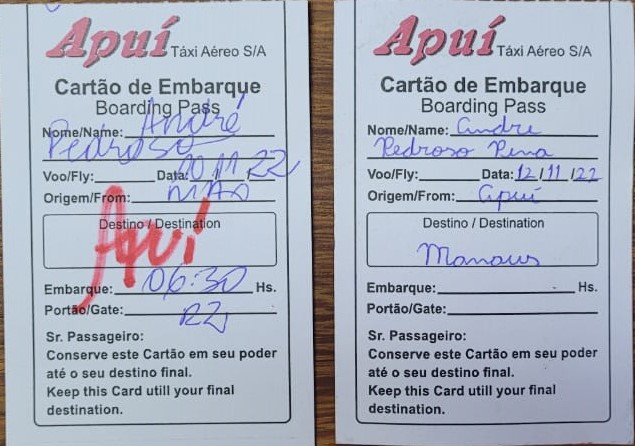 Apuí Táxi Aéreo S/A
Cartão de Embarque
Boarding Pass
Nome/Name: André
Pedroso
Voo/Fly: Data: 10/11/22
Origem/From: MAO
Destino / Destination
Apuí
Embarque: 06:30 Hs.
Portão/Gate:
Sr. Passageiro:
Conserve este Cartão em seu poder
até o seu destino final.
Keep this Card utill your final
destination.
Apuí Táxi Aéreo S/A
Cartão de Embarque
Boarding Pass
Nome/Name: Andre
Pedroso Pena
Voo/Fly: Data: 12/11/22
Origem/From: Apuí
Destino / Destination
Manaus
Embarque: Hs.
Portão/Gate:
Sr. Passageiro:
Conserve este Cartão em seu poder
até o seu destino final.
Keep this Card utill your final
destination.